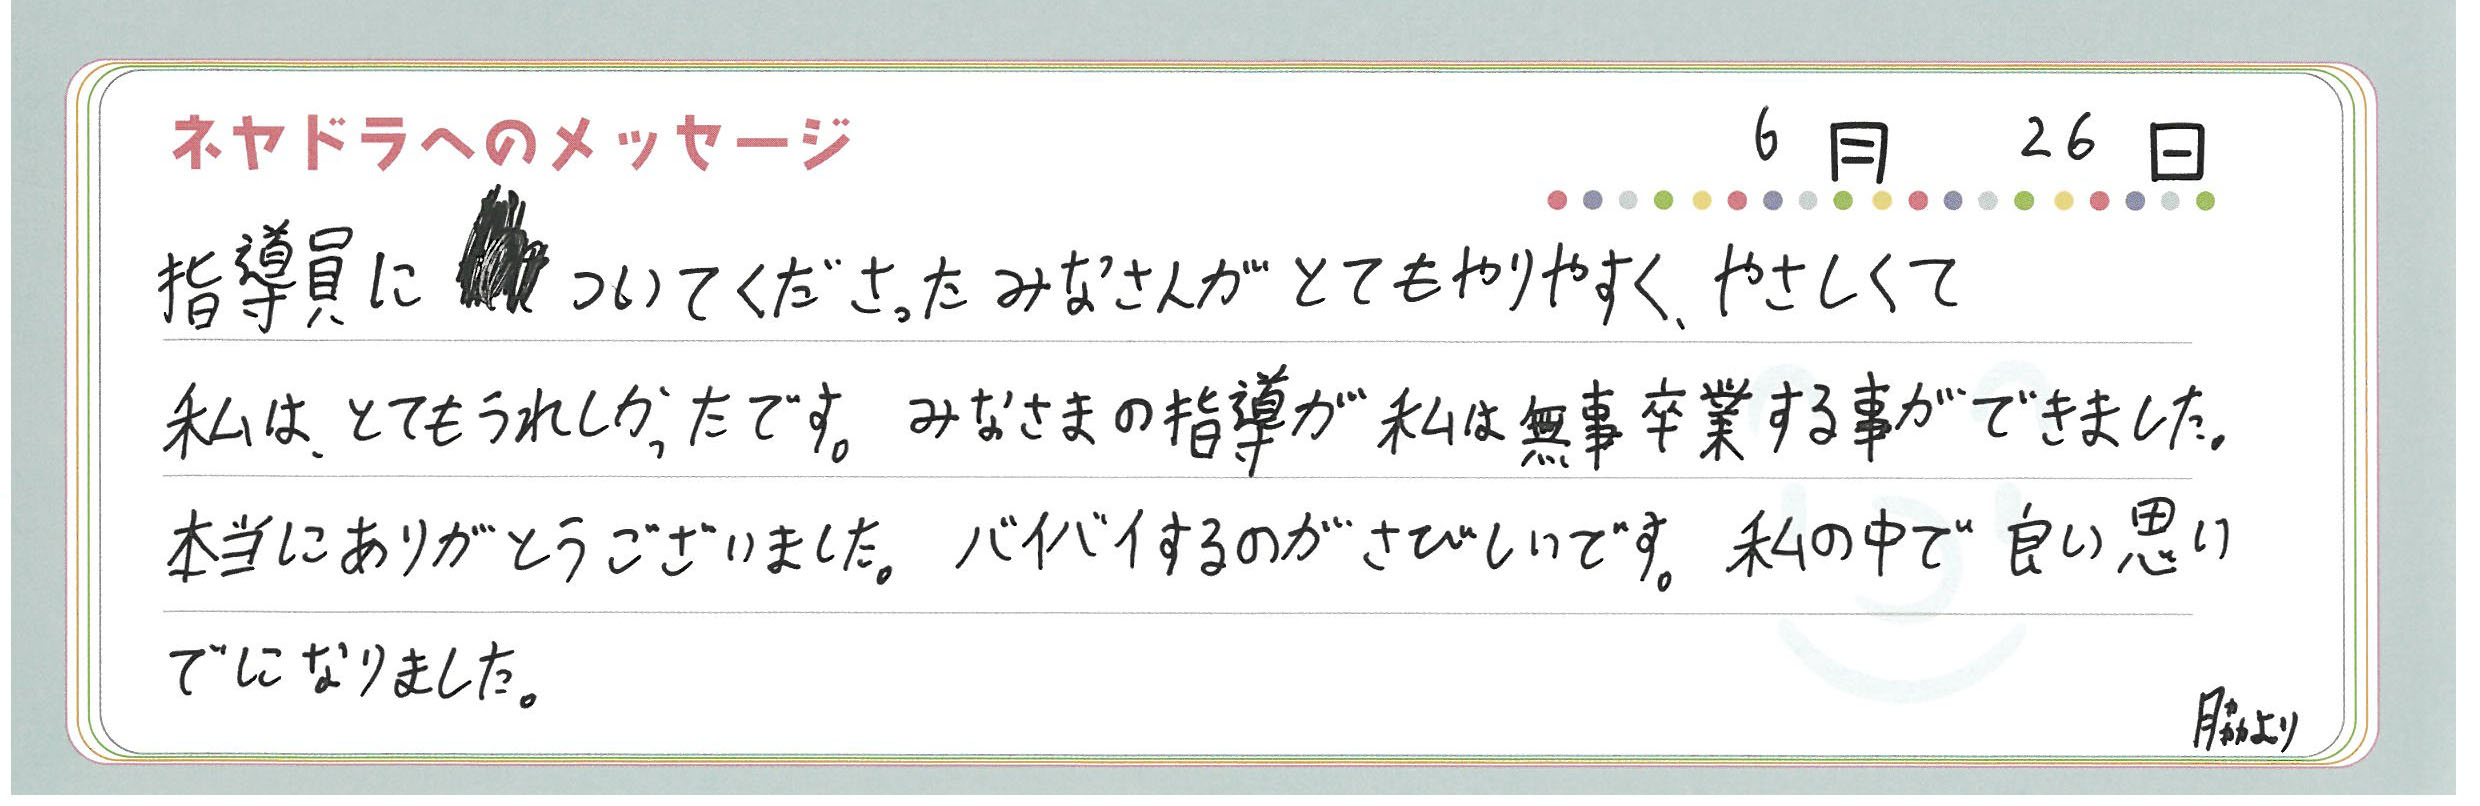 ネヤドラへのメッセージ
6月 26日
指導員に ついてくださったみなさんがとてもやりやすく、やさしくて
私は、とてもうれしかったです。みなさまの指導が私は無事卒業する事ができました。
本当にありがとうございました。バイバイするのがさびしいです。私の中で良い思い
でになりました。
脇より